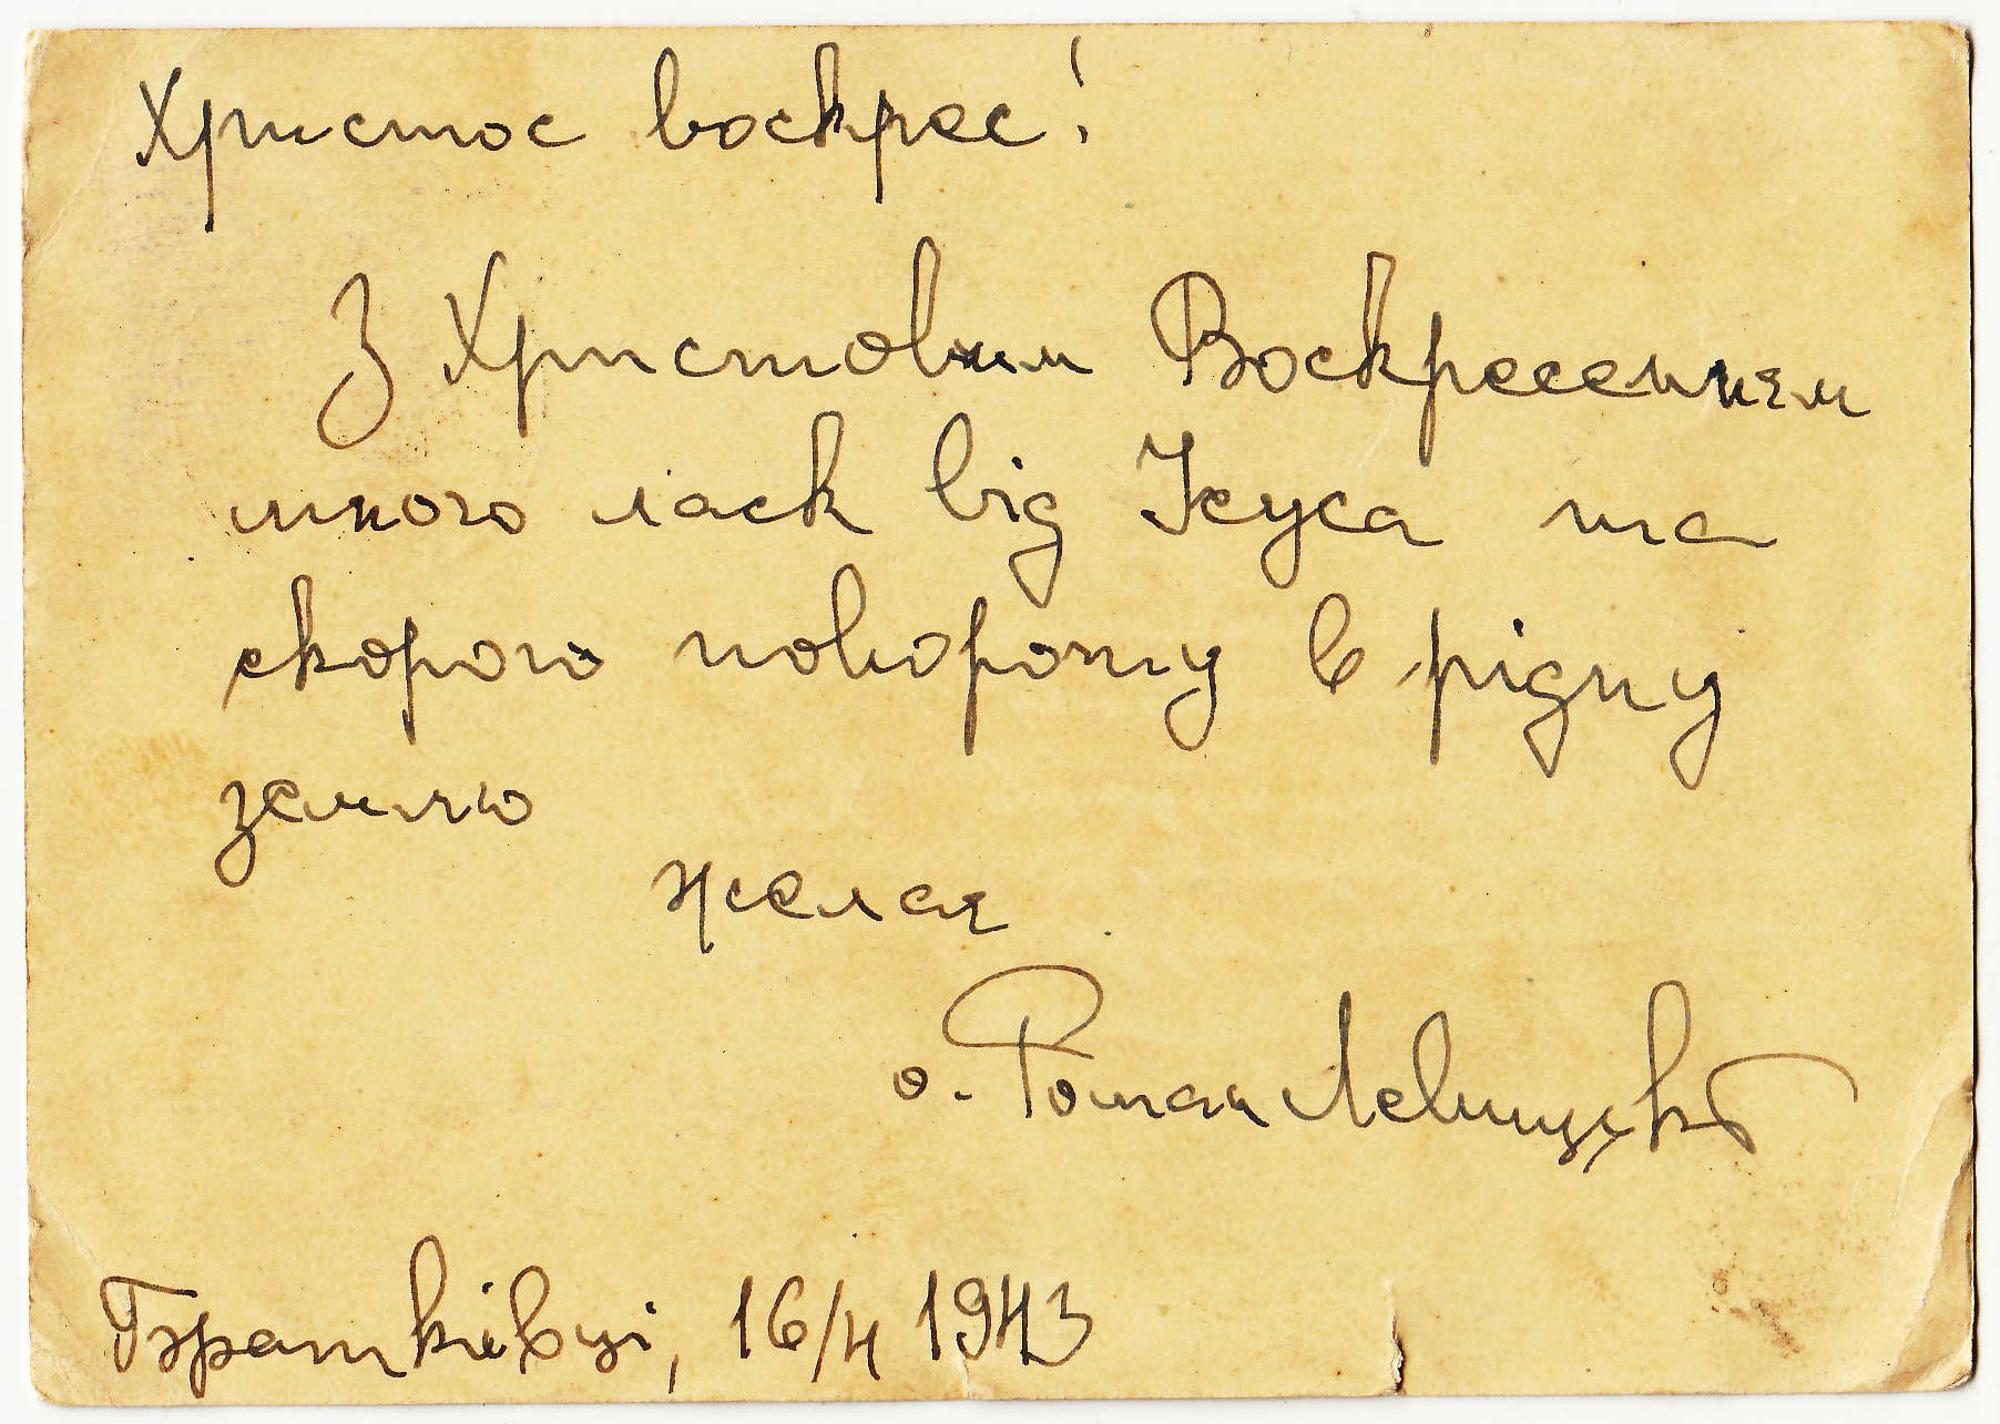 Христос воскрес!
З Христовим Воскресеннєм
много ласк від Ісуса та
скорого повороту в рідну
землю
желає
о. Роман Левицький
Братківці, 16/4 1943